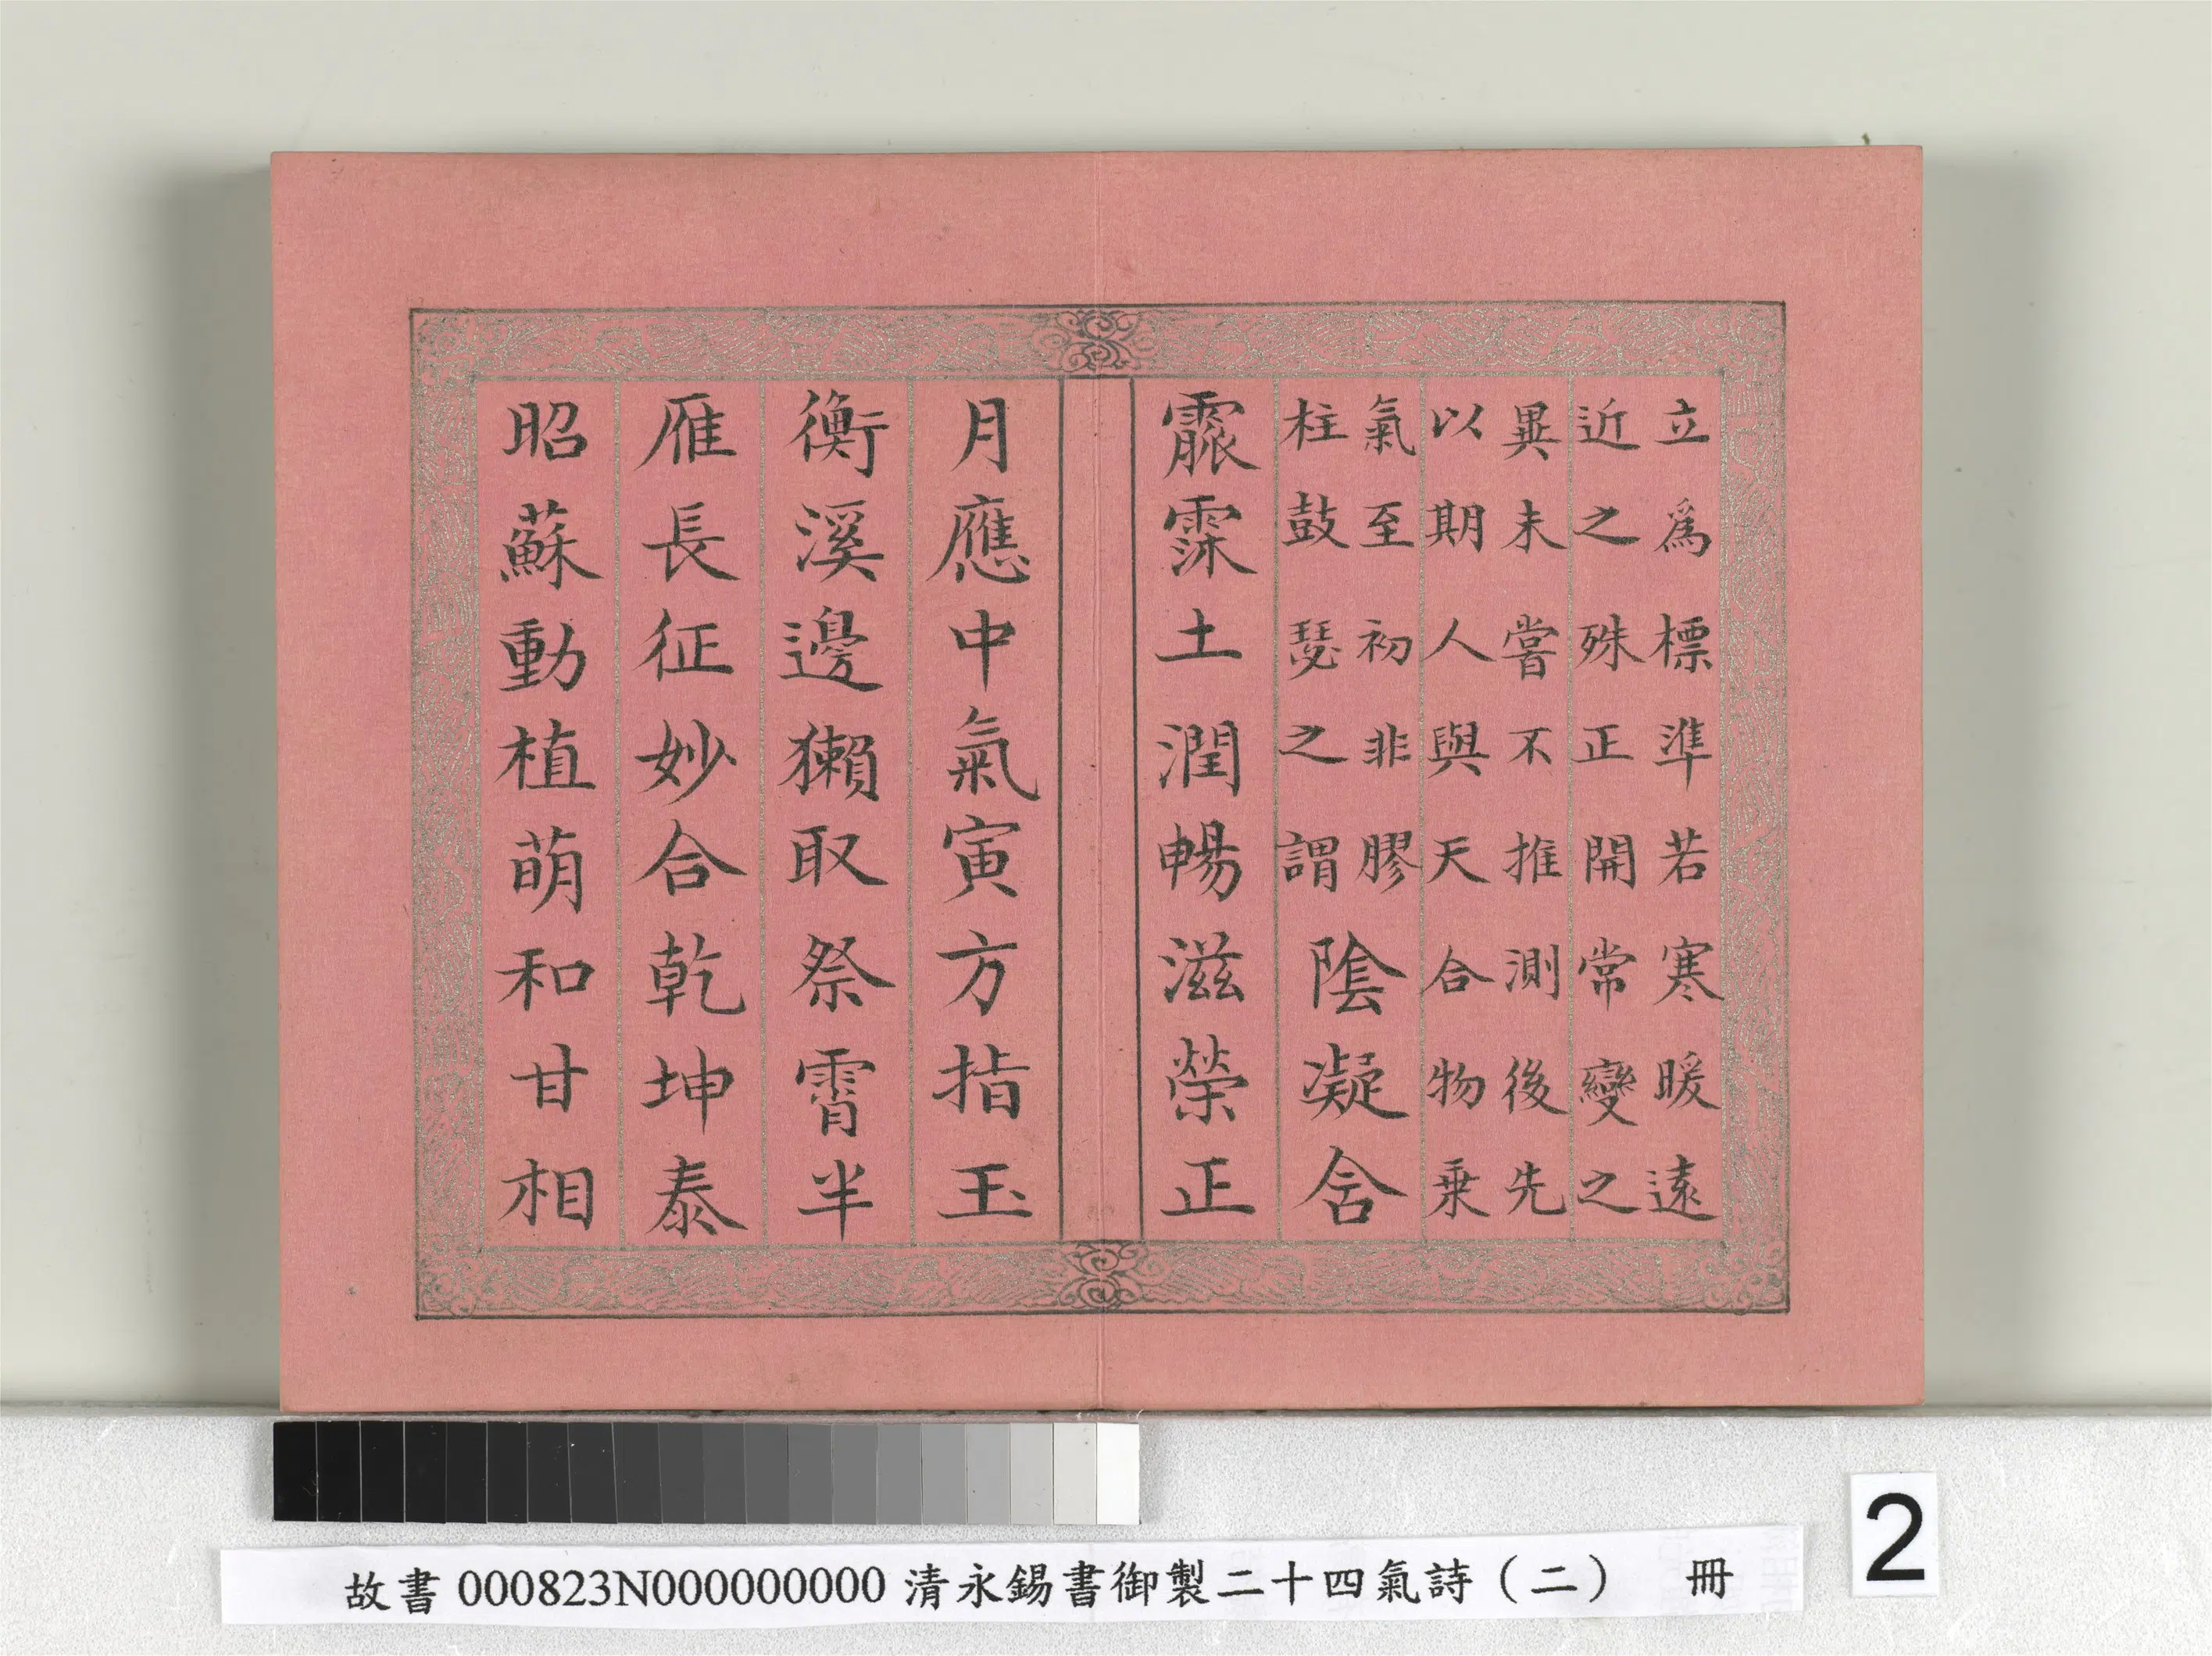 立爲標準若寒暖遠
近之殊正開常變之
異未嘗不推測後先
以期人與天合物乗
氣至初非膠
柱鼓瑟之謂
陰凝含
霢霂土潤暢滋榮正
月應中氣寅方指玉
衡溪邊獺取祭霄半
雁長征妙合乾坤泰
昭蘇動植萌和甘相
2
故書 000823N000000000 清永錫書御製二十四氣詩（二） 冊